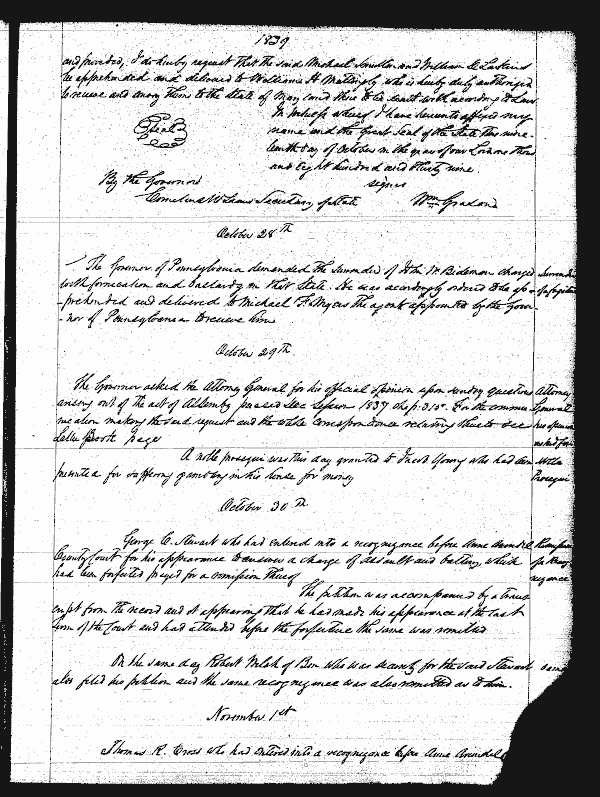 1839
and provided, I do hereby request that the said Michael Smelton and William C. Larkins
be apprehended and delivered to William H Mattingly, who is hereby duly authorized
to receive and convey them to the State of Maryland there to be dealt with according to Law
In witness whereof I have hereunto affixed my
name and the Great Seal of the State this nine-
Seal
teenth day of October in the year of our Lord one thou
sand Eight hundred and thirty nine.
By the Governor
signed
Cornelius McLean Secretary of State
Wm Grason
October 28th
The Governor of Pennsylvania demanded the surrender of John W. Bideman charged
Surrender
with fornication and bastardy in that State. He was accordingly ordered to be ap-
of a fugitive
-prehended and delivered to Michael F. Myers the agent appointed by the Gover-
-nor of Pennsylvania to receive him
October 29th
The Governor asked the Attorney General for his official opinion upon sundry questions
Attorney
arising out of the act of Assembly passed Dec session 1837 chp. 315. For the commu-
General
nication making the said request and the whole correspondence relating thereto see
his opinion
Letter Book page
asked for
A nolle prosequi was this day granted to Jacob Young who had been
Nolle
presented for suffering gambling in his house for money
Prosequi
October 30th
George C. Stewart who had entered into a recognizance before Anne Arundel
Remission
County Court for his appearance to answer a charge of assault and battery which
of a Recog
had been forfeited prayed for a remission thereof
nizance
The petition was accompanied by a trans
cript from the record and it appearing that he had made his appearance at the last
term of the Court and had attended before the forfeiture the same was remitted
On the same day Robert Welch of Ben who was security for the said Stewart
same
also filed his petition and the same recognizance was also remitted as to him.
November 1st
Thomas R. Cross who had entered into a recognizance before Anne Arundel